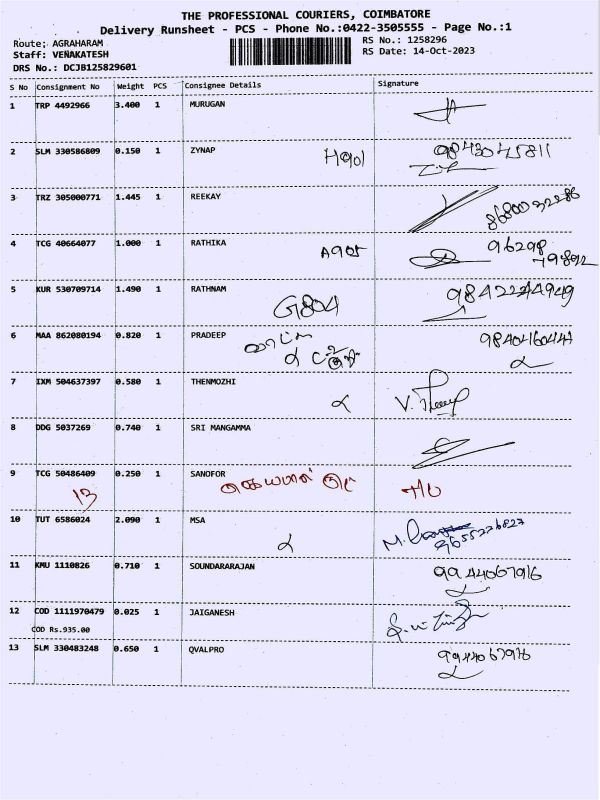 THE PROFESSIONAL COURIERS, COIMBATORE
Delivery Runsheet - PCS - Phone No.:0422-3505555 - Page No.:1
Route: AGRAHARAM RS No.: 1258296
Staff: VENAKATESH RS Date: 14-Oct-2023
DRS No.: DCJB125829601
S No Consignment No Weight PCS Consignee Details Signature
1 TRP 4492966 3.400 1 MURUGAN
2 SLM 330586809 0.150 1 ZYNAP H901 9843045811
3 TRZ 305000771 1.445 1 REEKAY 8680032286
4 TCG 40664077 1.000 1 RATHIKA A905 96298
79892
5 KUR 530709714 1.490 1 RATHNAM G804 9842244949
6 MAA 862080194 0.820 1 PRADEEP 9840416044
7 IXM 504637397 0.580 1 THENMOZHI
8 DDG 5037269 0.740 1 SRI MANGAMMA
9 TCG 50486409 0.250 1 SANOFOR
13
10 TUT 6586024 2.090 1 MSA
11 KMU 1110826 0.710 1 SOUNDARARAJAN 9944067916
12 COD 1111970479 0.025 1 JAIGANESH
COD Rs.935.00
13 SLM 330483248 0.650 1 QVALPRO 9944067916